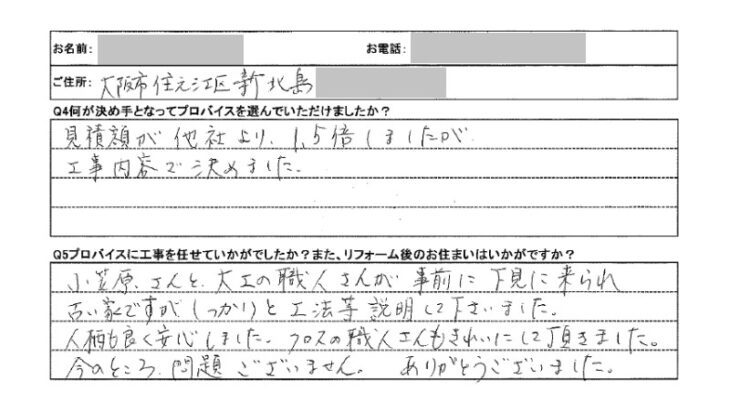 お名前: お電話:
ご住所: 大阪市住之江区新北島
Q4何が決め手となってプロバイスを選んでいただけましたか？
見積額が他社より、1,5倍しましたが
工事内容で決めました。
Q5プロバイスに工事を任せていかがでしたか？また、リフォーム後のお住まいはいかがですか？
小笠原さんと、大工の職人さんが事前に下見に来られ
古い家ですがしっかりと工法等説明して下さいました。
人柄も良く安心しました。クロスの職人さんもきれいにして頂きました。
今のところ、問題ございません。 ありがとうございました。